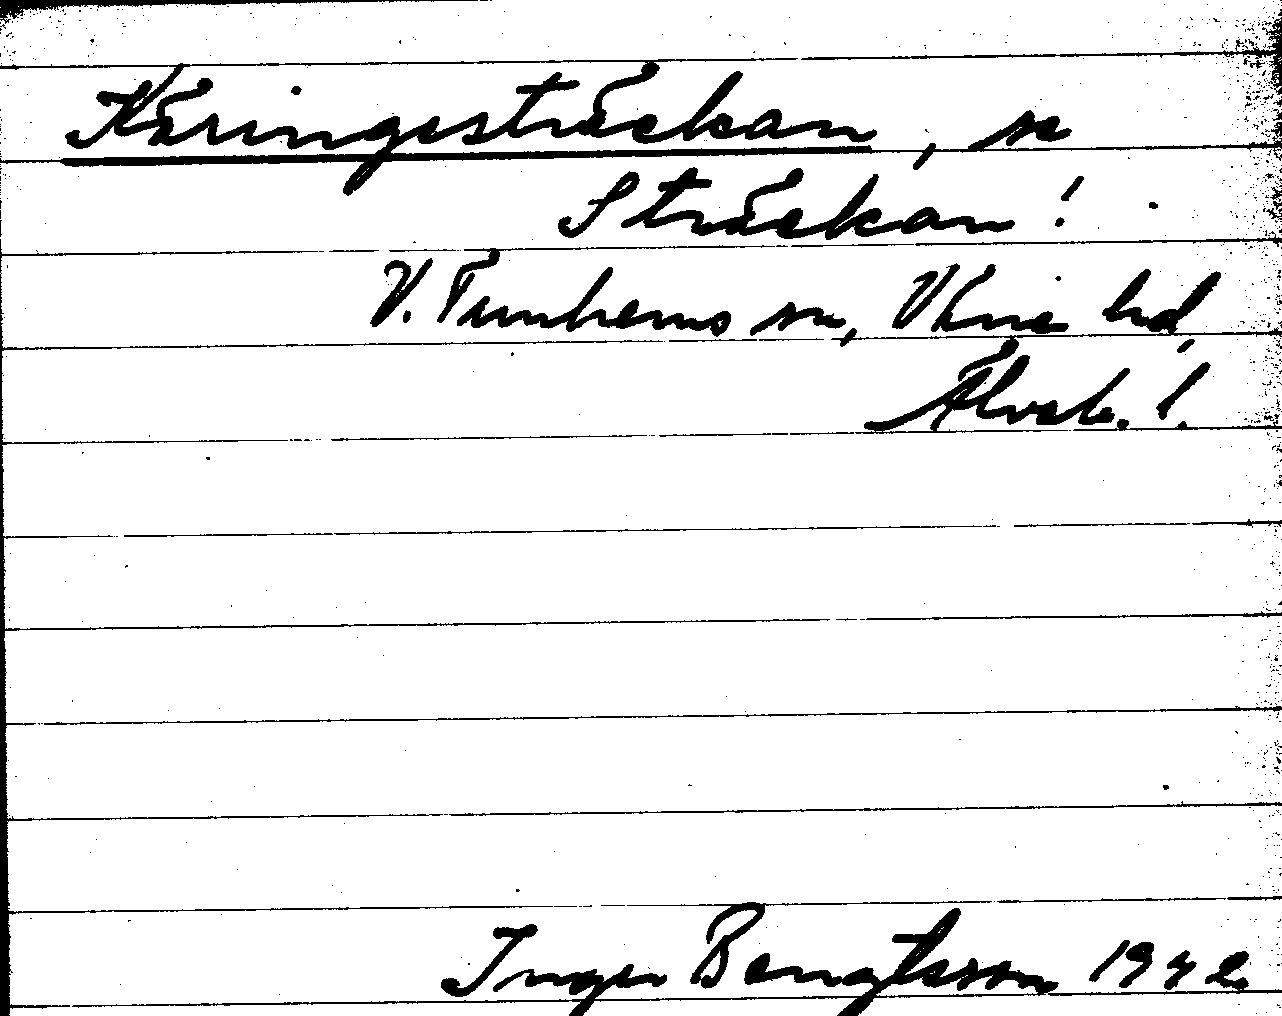 Käringesträckan, se
Sträckan!
V. Tunhems sn, Väne hd,
Älvsb. l.
Inger Bengtsson 1942.